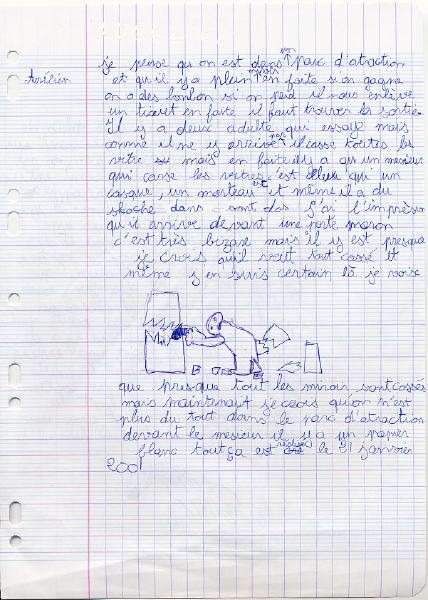 Aurélien
je pense qu on est dans un parc d'atraction
et qu'il y a plein miroir en faite si on gagne
on a des bonbon si on perd il nous enlève
un ticket en faite il faut trouver la sortie.
Il y a deux adulte qui essaye mais
comme il ne y arrive pas il casse toutes les
vitre mais en faite il y a qu un mesieur
qui casse les vitres c'est celui qui un
casque, un marteau et et même il a du
skoche dans sont dos j'ai l'impresion
qu'il arrive devant une porte maron
c'est très bizare mais il y est presque
je crois qu'il veut tout cassé et
même j en suis certain là je voix
que presque tout les miroir sont cassés
mais maintenait je crois qu'on n'est
plus du tout dans le parc d'atraction
devant le mesieur il y a un papier
blanc tout ça est réalisé le 21 janvier
2001